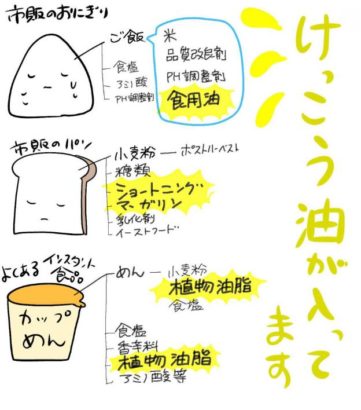 市販のおにぎり
ご飯
米
品質改良剤
PH調整剤
食用油
食塩
アミノ酸
PH調整剤
市販のパン
小麦粉 ― ポストハーベスト
糖類
ショートニング
マーガリン
乳化剤
イーストフード
よくあるインスタント食品
カップめん
めん ― 小麦粉
植物油脂
食塩
食塩
香辛料
植物油脂
アミノ酸等
けっこう油が入ってます